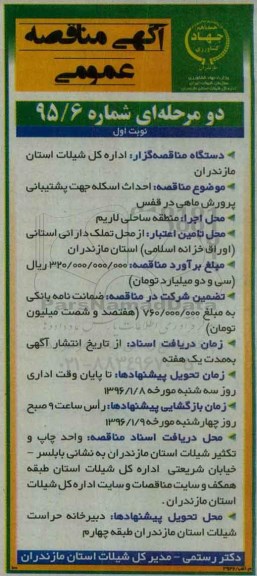 جهاد
کشاورزی
آگهی مناقصه
عمومی
دو مرحله‌ای شماره ۹۵/۶
نوبت اول
دستگاه مناقصه‌گزار: اداره کل شیلات استان
مازندران
موضوع مناقصه: احداث اسکله جهت پشتیبانی
پرورش ماهی در قفس
محل اجرا: منطقه ساحلی لاریم
محل تامین اعتبار: از محل تملک دارائی استانی
(اوراق خزانه اسلامی) استان مازندران
مبلغ برآورد مناقصه: ۳۲۰/۰۰۰/۰۰۰/۰۰۰ ریال
(سی و دو میلیارد تومان)
تضمین شرکت در مناقصه: ضمانت نامه بانکی
به مبلغ ۷۶۰/۰۰۰/۰۰۰ (هفتصد و شصت میلیون
تومان)
زمان دریافت اسناد: از تاریخ انتشار آگهی
به‌مدت یک هفته
زمان تحویل پیشنهادها: تا پایان وقت اداری
روز سه شنبه مورخه ۱۳۹۶/۱/۸
زمان بازگشایی پیشنهادها: رأس ساعت ۹ صبح
روز چهارشنبه مورخه ۱۳۹۶/۱/۹
محل دریافت اسناد مناقصه: واحد چاپ و
تکثیر شیلات استان مازندران به نشانی بابلسر -
خیابان شریعتی اداره کل شیلات استان طبقه
همکف و سایت مناقصات و سایت اداره کل شیلات
استان مازندران.
محل تحویل پیشنهادها: دبیرخانه حراست
شیلات استان مازندران طبقه چهارم
دکتر رستمی - مدیر کل شیلات استان مازندران